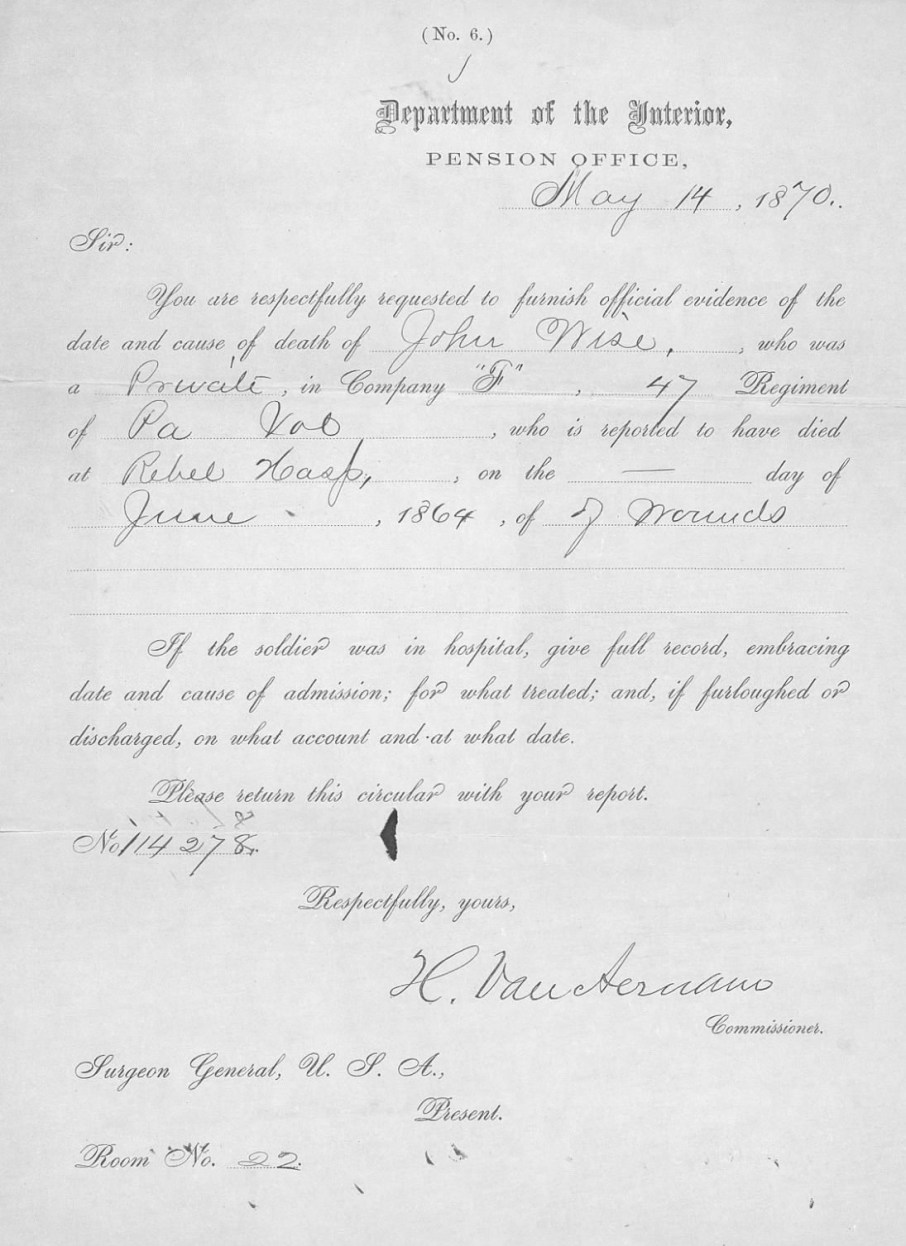 (No. 6.)
Department of the Interior,
PENSION OFFICE,
May 14, 1870.
Sir:
You are respectfully requested to furnish official evidence of the
date and cause of death of John Wise, , who was
a Private, in Company "F", 47 Regiment
of Pa Vol , who is reported to have died
at Rebel Hosp, , on the — day of
June , 1864 , of of wounds
If the soldier was in hospital, give full record, embracing
date and cause of admission; for what treated; and, if furloughed or
discharged, on what account and at what date.
Please return this circular with your report.
No 114278.
Respectfully, yours,
H. Van Aernam
Commissioner.
Surgeon General, U. S. A.,
Present.
Room No. 22.